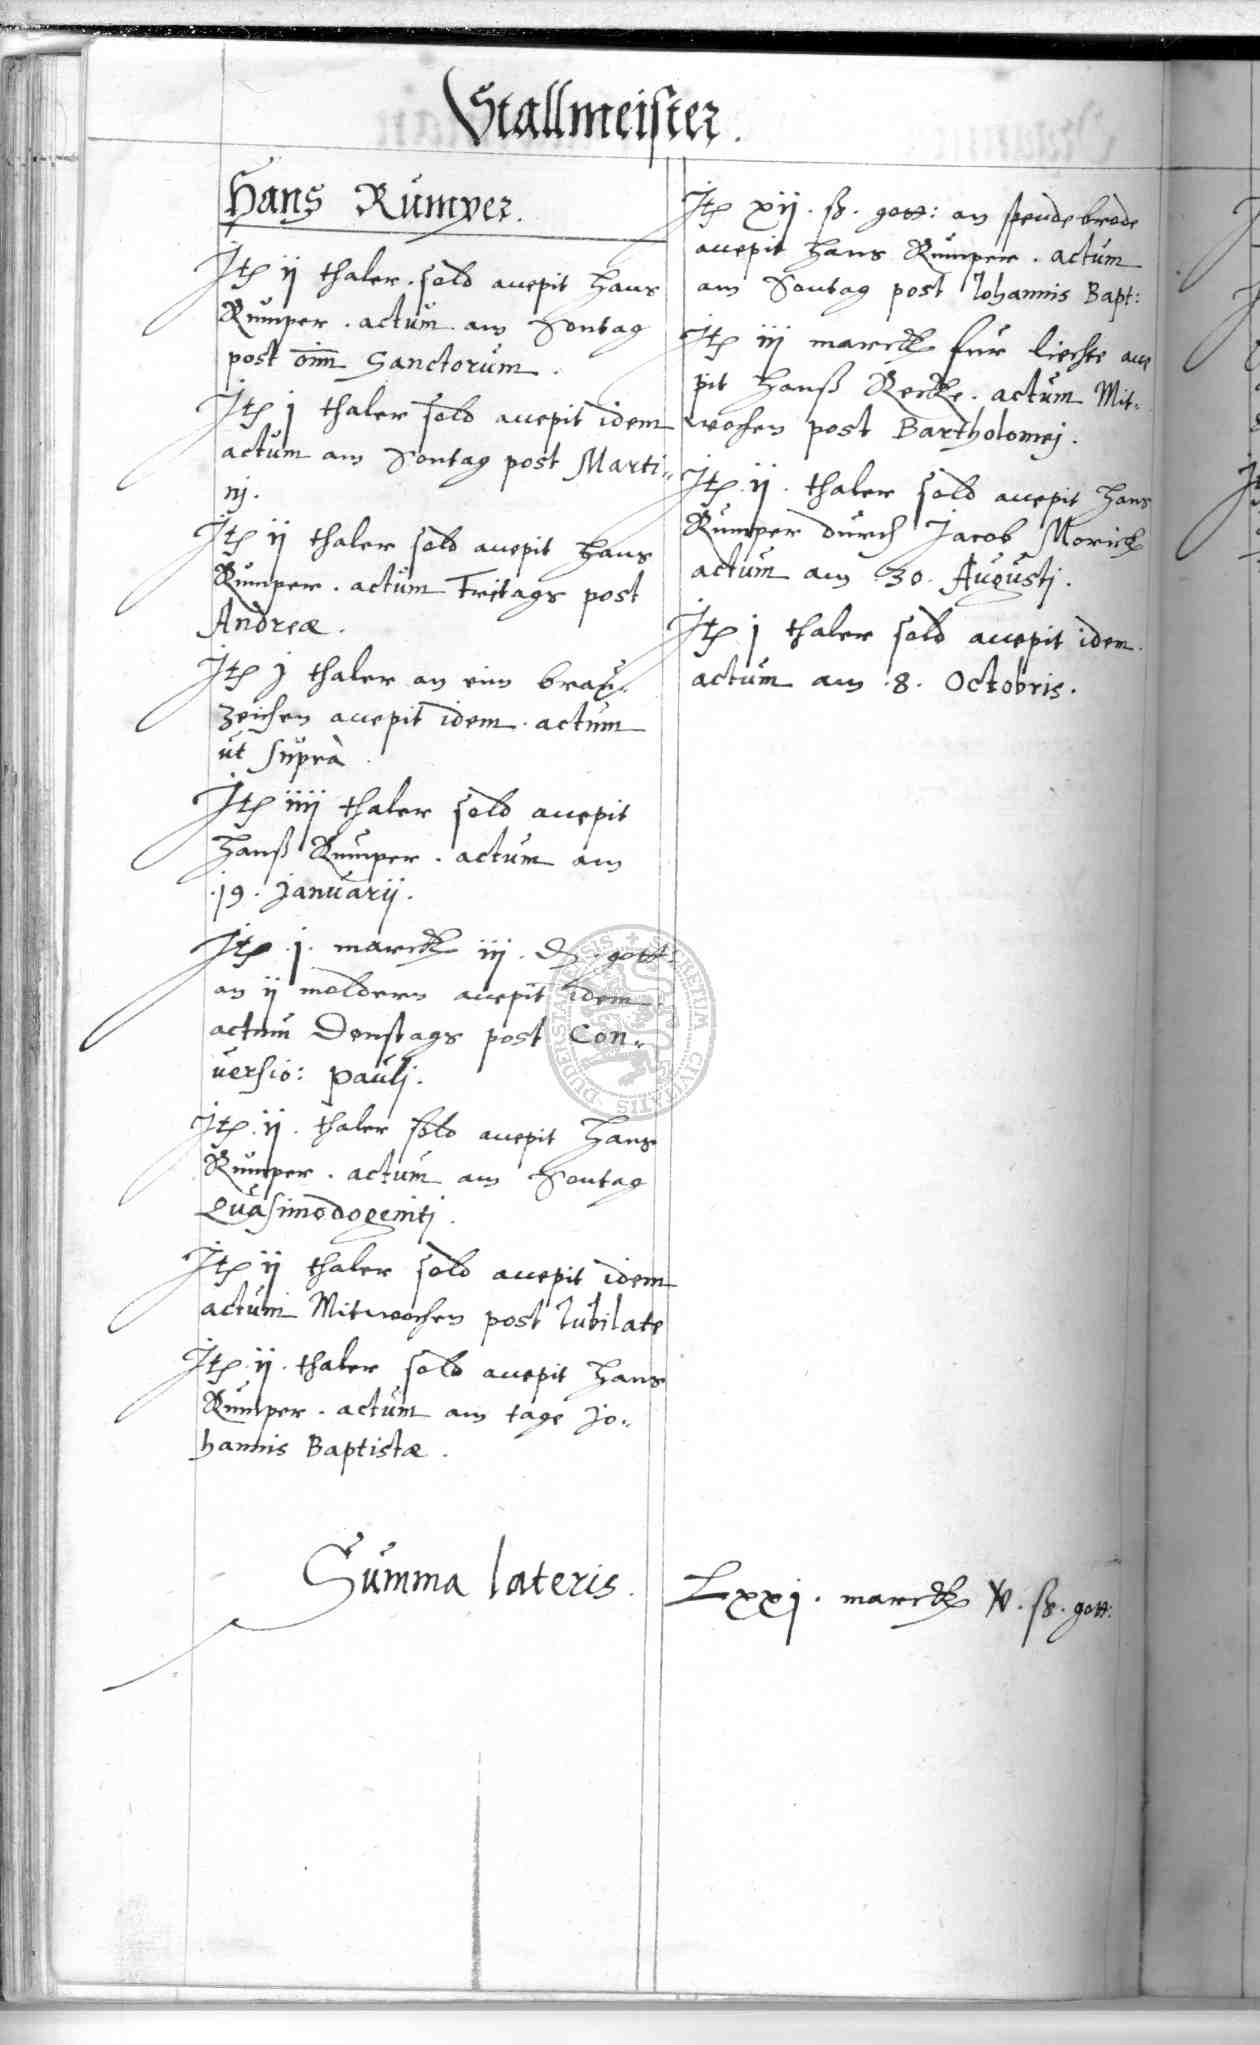 Stallmeister.
Hans Rumper.
Jtem ij thaler. sold accepit Hans
Rumper. actum am Sontag
post oīm Sanctorum.
Jtem j thaler sold accepit idem
actum am Sontag post Marti-
nj.
Jtem ij thaler sold accepit Hans
Rumper. actum Fritags post
Andreæ.
Jtem j thaler an einn brau-
zeichen accepit idem. actum
ut suprà.
Jtem iiij thaler sold accepit
Hanß Rumper. actum am
.19. Januarij.
Jtem .j. marck iij. ₰. gott:
an ij moldern accepit idem.
actum Denstags post Con-
uersio: Paulj.
Jtem .ij. thaler sold accepit Hans
Rumper. actum am Sontag
Quasimodogenitj.
Jtem ij thaler sold accepit idem
actum Mitwochen post Iubilate
Jtem .ij. thaler sold accepit Hans
Rumper. actum am tage Jo-
hannis Baptistæ.
Jtem xij. ß. gott: an spendebrode
accepit Hans Rumper. actum
am Sontag post Iohannis Bapt:
Jtem iij marck fur liechte acce
pit Hanß Recke. actum Mit-
wochen post Bartholomej.
Jtem .ij. thaler sold accepit Hans
Rumper durch Jacob Morick
actum am .30. Augustj.
Jtem j thaler sold accepit idem.
actum am .8. Octobris.
Summa lateris. Lxxj. marck v. ß. gott:
SECRETUM CIVITATIS DUDERSTADENSIS